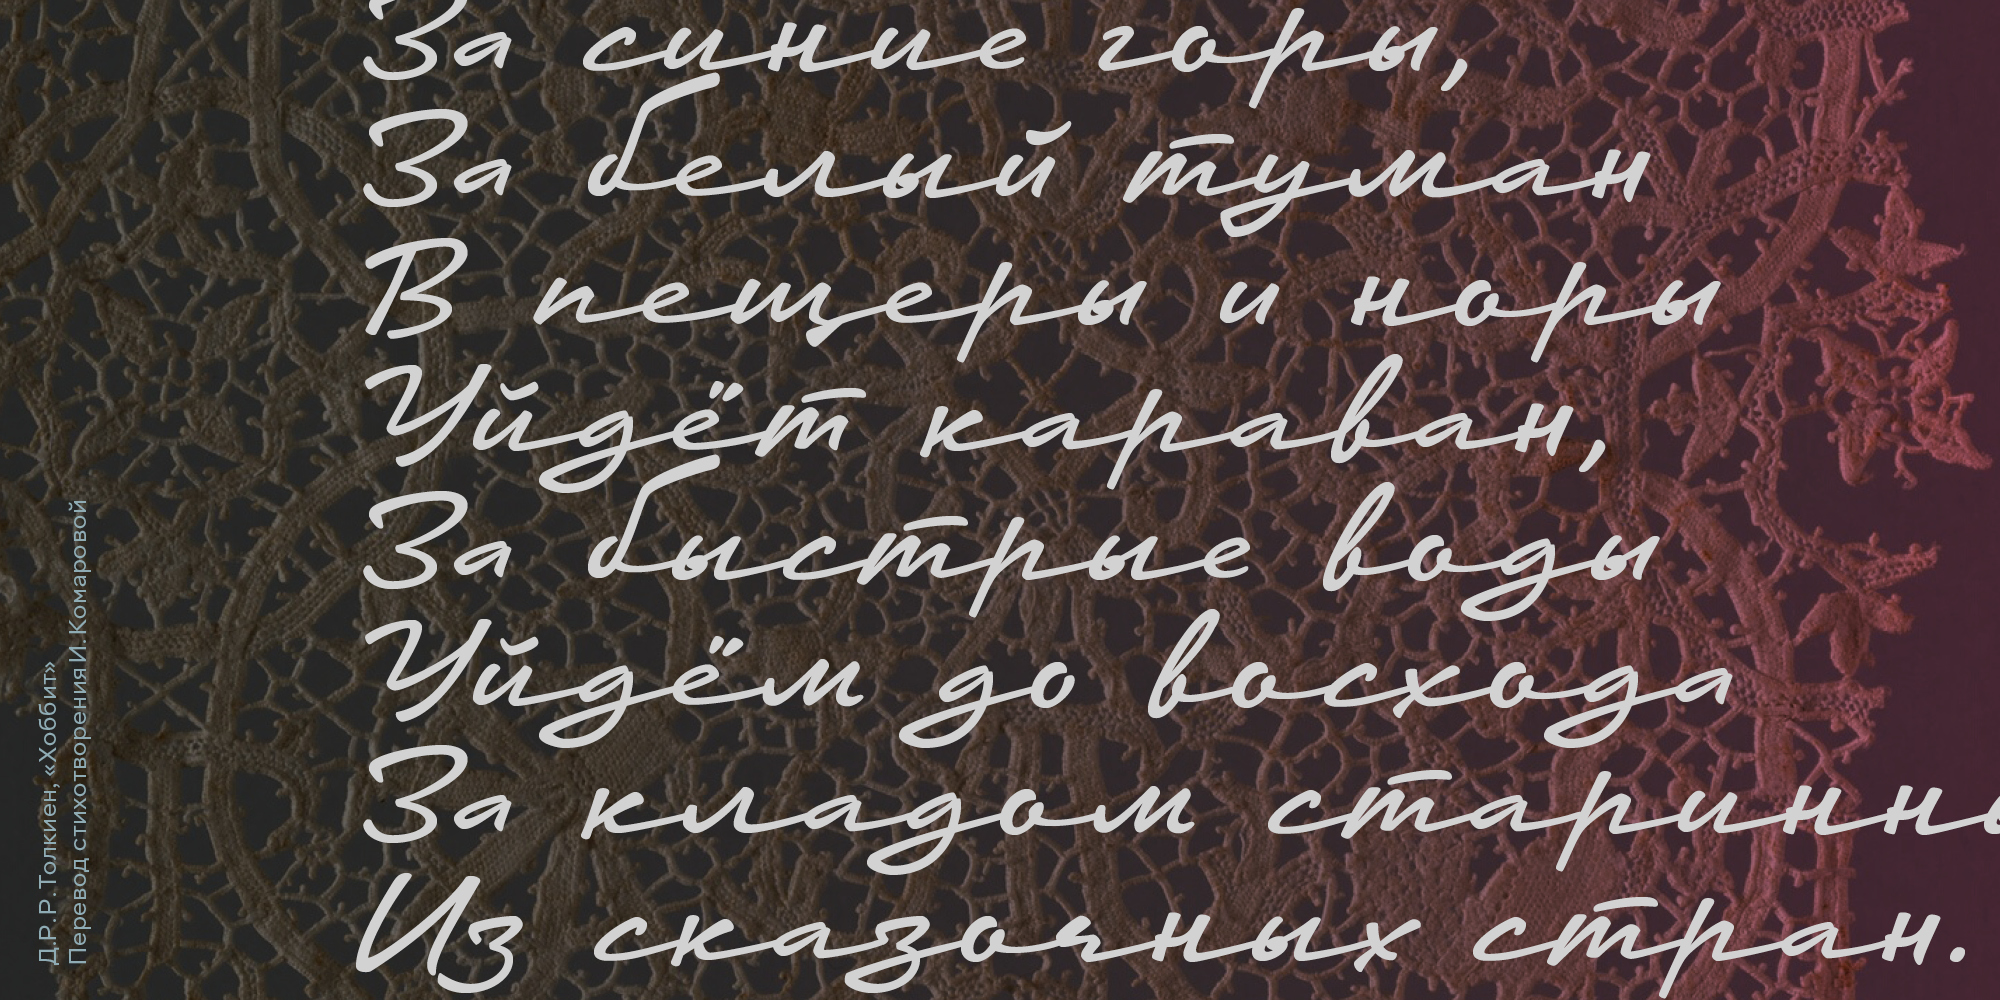 За синие горы,
За белый туман
В пещеры и норы
Уйдёт караван,
За быстрые воды
Уйдём до восхода
За кладом старинны
Из сказочных стран.
Д.Р.Р.Толкиен, «Хоббит»
Перевод стихотворения И.Комаровой